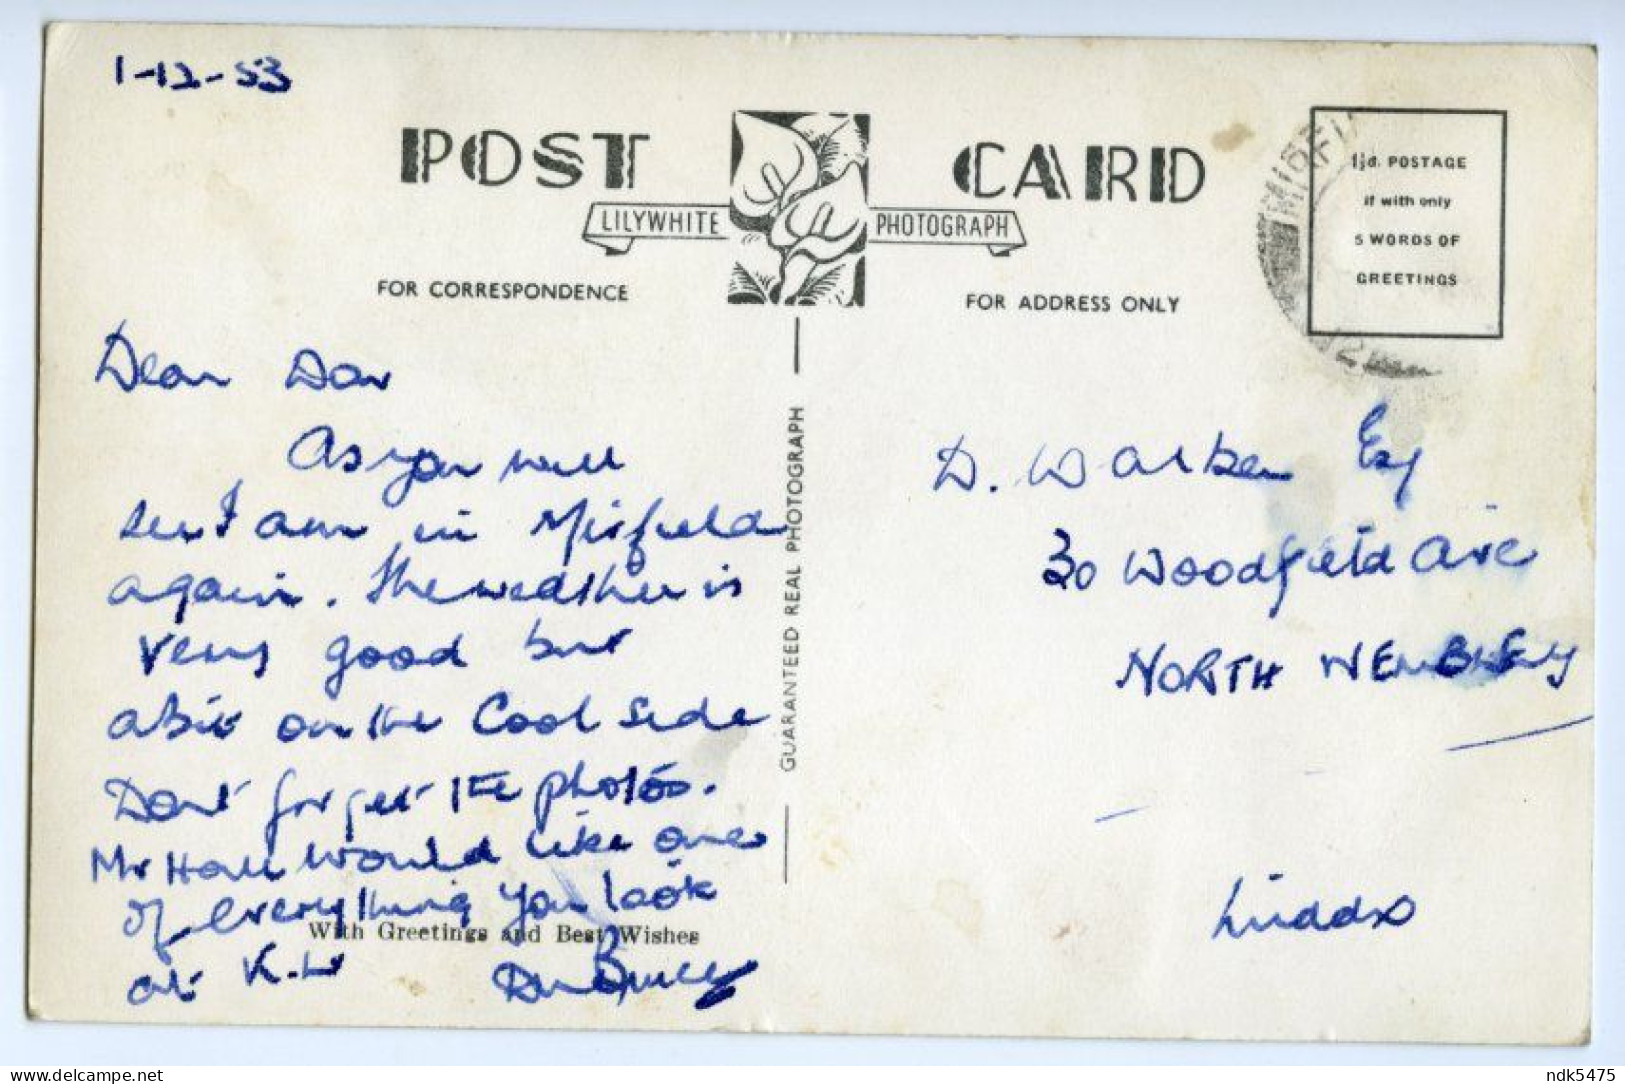 1-12-53
POST CARD
LILYWHITE PHOTOGRAPH
FOR CORRESPONDENCE
FOR ADDRESS ONLY
1½d. POSTAGE
if with only
5 WORDS OF
GREETINGS
MIRFI
Dear
As you will
see I am in Mirfield
again. The weather is
very good but
abit on the Cool side
Dont forget the photos.
Mr Hall would like one
of everything you took
at K.W
Bruce
With Greetings and Best Wishes
GUARANTEED REAL PHOTOGRAPH
D. Walker Esq
30 Woodfield Ave
NORTH WEMBLEY
Middx
ndk5475